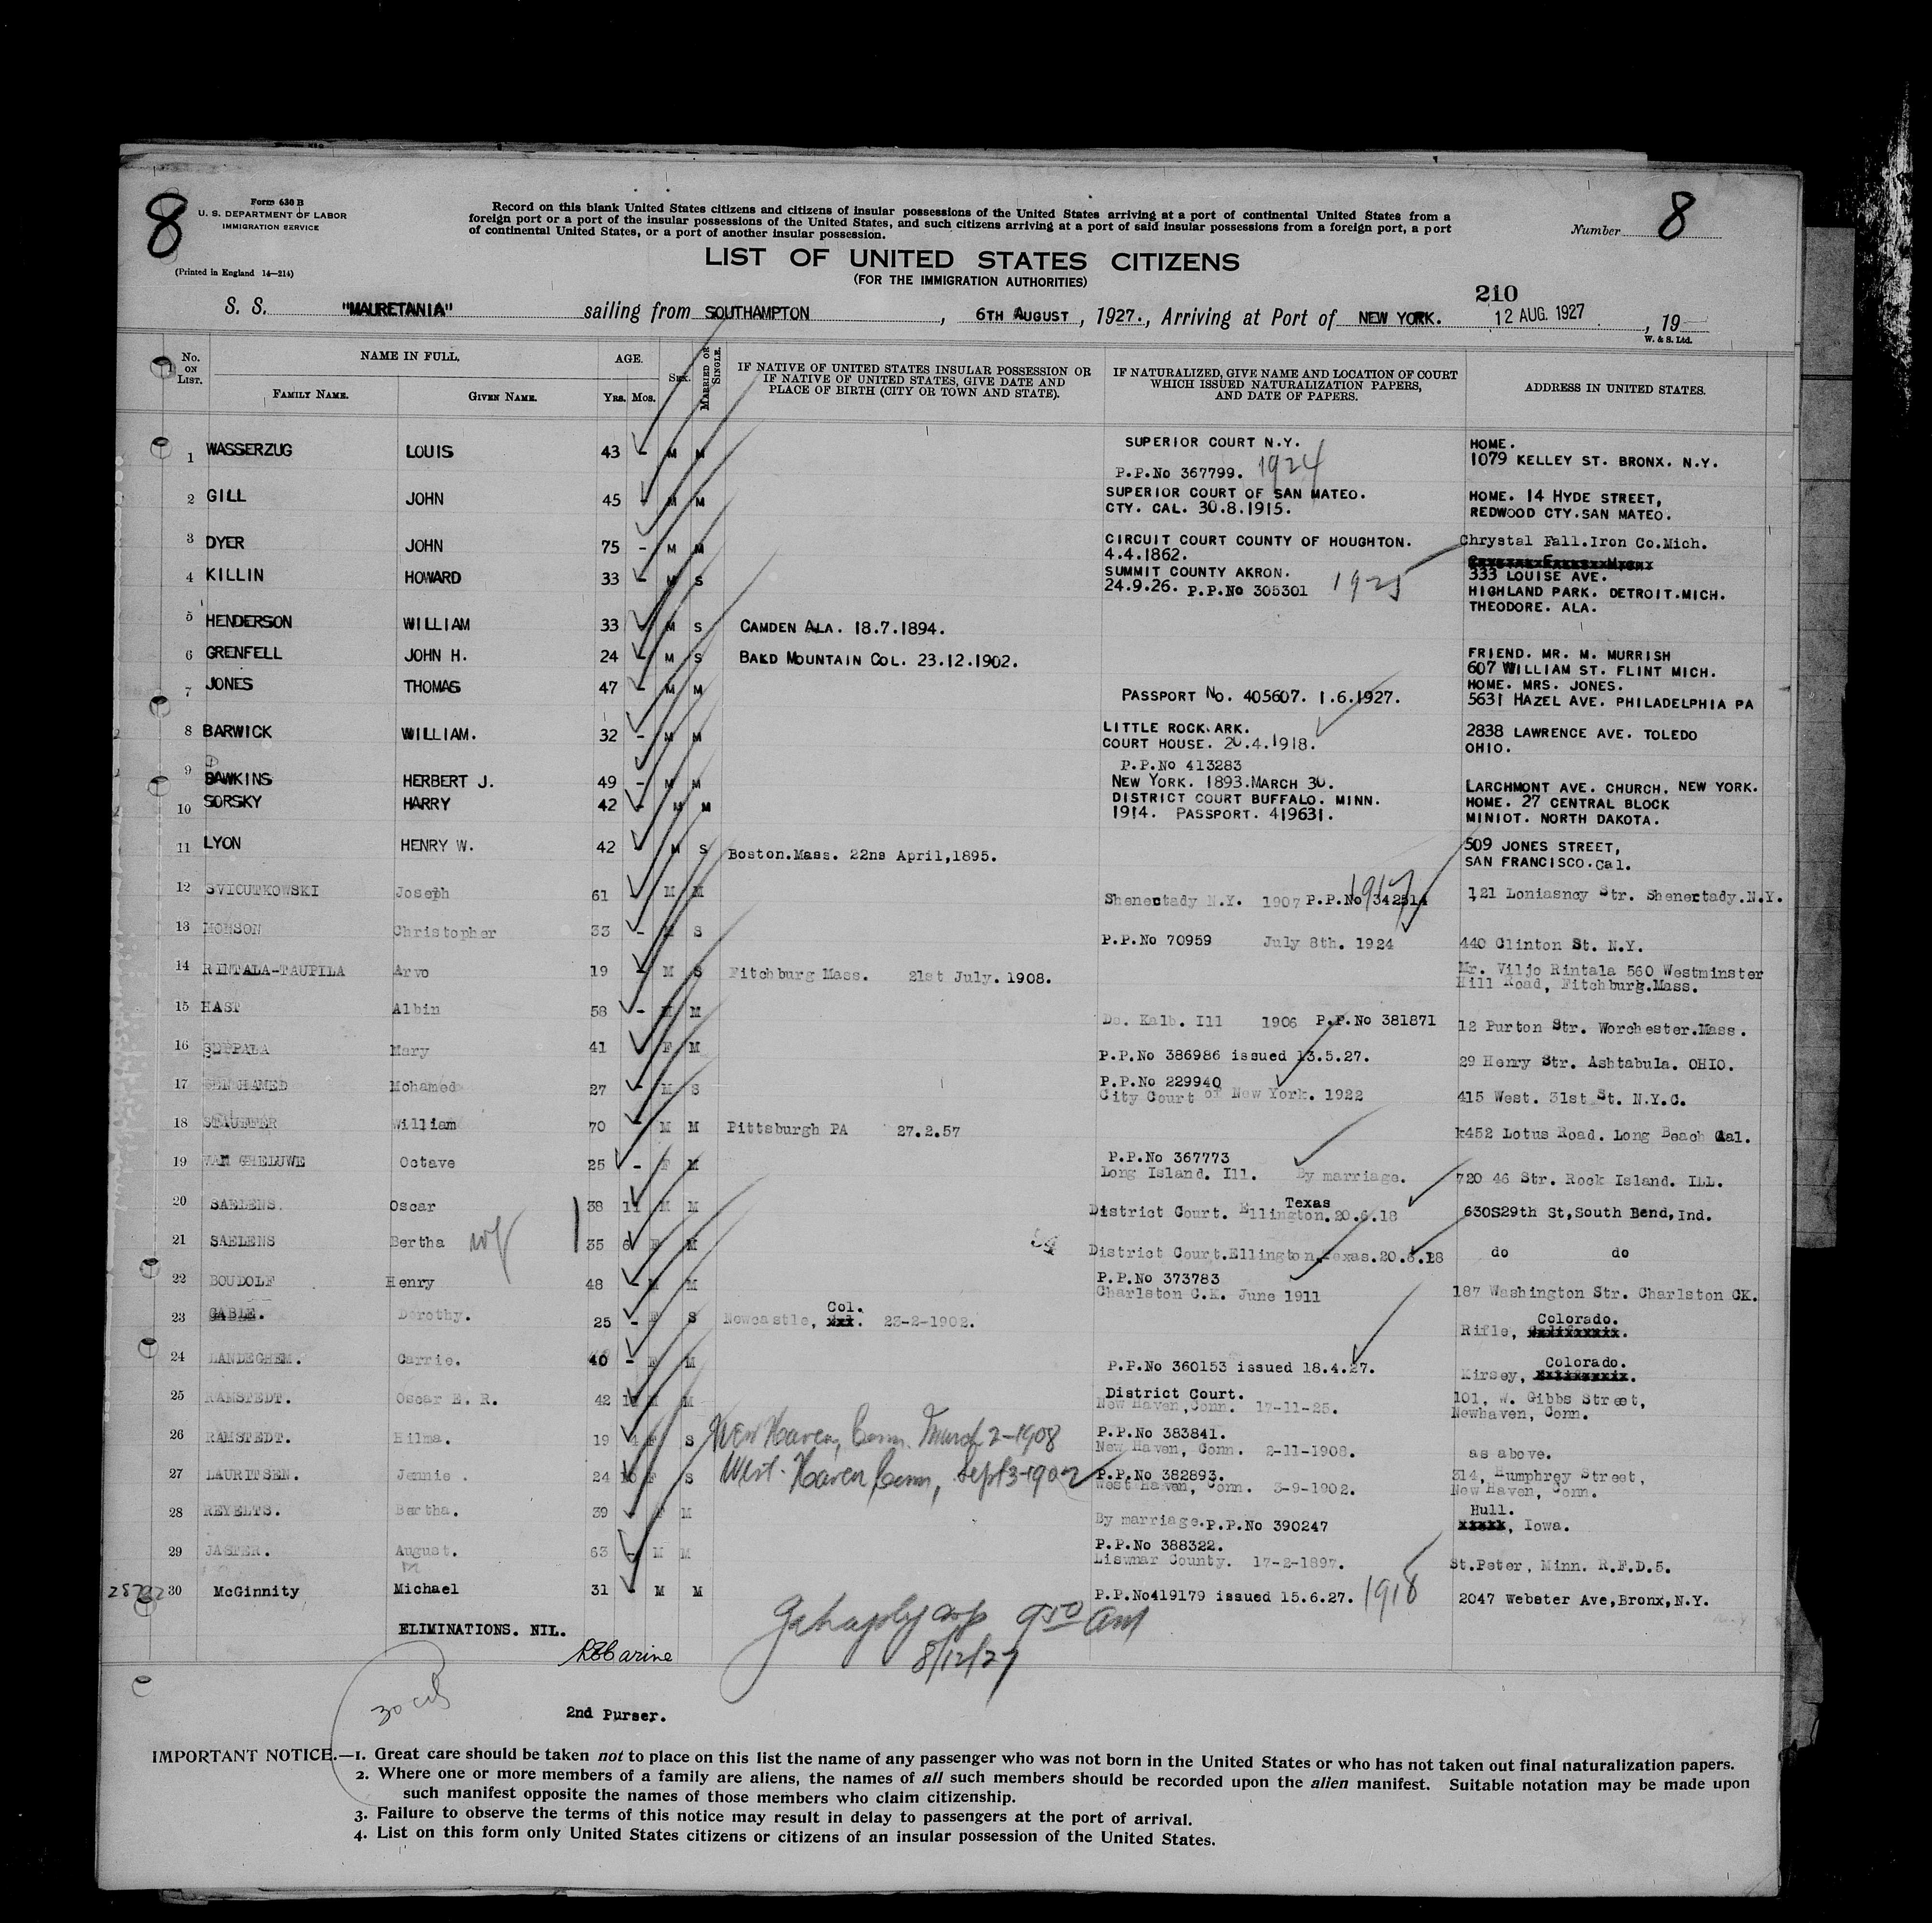 8
Form 630 B
U. S. DEPARTMENT OF LABOR
IMMIGRATION SERVICE
(Printed in England 14—214)
Record on this blank United States citizens and citizens of insular possessions of the United States arriving at a port of continental United States from a
foreign port or a port of the insular possessions of the United States, and such citizens arriving at a port of said insular possessions from a foreign port, a port
of continental United States, or a port of another insular possession.
Number 8
LIST OF UNITED STATES CITIZENS
(FOR THE IMMIGRATION AUTHORITIES)
210
S. S. "MAURETANIA" sailing from SOUTHAMPTON, 6TH AUGUST, 1927., Arriving at Port of NEW YORK. 12 AUG. 1927, 19
W. & S. Ltd.
No. ON LIST.
NAME IN FULL.
FAMILY NAME.
GIVEN NAME.
AGE.
Yrs. Mos.
SEX.
MARRIED OR SINGLE.
IF NATIVE OF UNITED STATES INSULAR POSSESSION OR
IF NATIVE OF UNITED STATES, GIVE DATE AND
PLACE OF BIRTH (CITY OR TOWN AND STATE).
IF NATURALIZED, GIVE NAME AND LOCATION OF COURT
WHICH ISSUED NATURALIZATION PAPERS,
AND DATE OF PAPERS.
ADDRESS IN UNITED STATES.
1 WASSERZUG LOUIS 43 - M M SUPERIOR COURT N.Y. HOME.
P.P.No 367799. 1924 1079 KELLEY ST. BRONX. N.Y.
2 GILL JOHN 45 - M M SUPERIOR COURT OF SAN MATEO. HOME. 14 HYDE STREET,
CTY. CAL. 30.8.1915. REDWOOD CTY.SAN MATEO.
3 DYER JOHN 75 - M M CIRCUIT COURT COUNTY OF HOUGHTON. Chrystal Fall.Iron Co.Mich.
4.4.1862.
4 KILLIN HOWARD 33 - M S SUMMIT COUNTY AKRON. 333 LOUISE AVE.
24.9.26. P.P.No 305301 1925 HIGHLAND PARK. DETROIT.MICH.
5 HENDERSON WILLIAM 33 - M S CAMDEN ALA. 18.7.1894. THEODORE. ALA.
6 GRENFELL JOHN H. 24 - M S BALD MOUNTAIN COL. 23.12.1902. FRIEND. MR. M. MURRISH
607 WILLIAM ST. FLINT MICH.
7 JONES THOMAS 47 - M M PASSPORT No. 405607. 1.6.1927. HOME. MRS. JONES.
5631 HAZEL AVE. PHILADELPHIA PA
8 BARWICK WILLIAM. 32 - M M LITTLE ROCK.ARK. 2838 LAWRENCE AVE. TOLEDO
COURT HOUSE. 20.4.1918. OHIO.
P.P.No 413283
9 DAWKINS HERBERT J. 49 - M M NEW YORK. 1893.MARCH 30. LARCHMONT AVE. CHURCH. NEW YORK.
10 SORSKY HARRY 42 - M M DISTRICT COURT BUFFALO. MINN. HOME. 27 CENTRAL BLOCK
1914. PASSPORT. 419631. MINIOT. NORTH DAKOTA.
11 LYON HENRY W. 42 - M S Boston.Mass. 22ns April,1895. 509 JONES STREET,
SAN FRANCISCO.Cal.
12 SVICUTKOWSKI Joseph 61 M M Shenectady N.Y. 1907 P.P.No 342514 1917 121 Loniasney Str. Shenectady.N.Y.
13 MONSON Christopher 33 - M S P.P.No 70959 July 8th. 1924 440 Clinton St. N.Y.
14 RINTALA-TAUPILA Arvo 19 - M S Fitchburg Mass. 21st July. 1908. Mr. Viljo Rintala 560 Westminster
Hill Road, Fitchburg.Mass.
15 HAST Albin 58 - M M De. Kalb. Ill 1906 P.P.No 381871 12 Purton Str. Worchester.Mass.
16 SEPPALA Mary 41 F M P.P.No 386986 issued 13.5.27. 29 Henry Str. Ashtabula. OHIO.
17 Mohamed 27 - M S P.P.No 229940
City Court of New York. 1922 415 West. 31st St. N.Y.C.
18 STAUFFER William 70 - M M Pittsburgh PA 27.2.57 452 Lotus Road. Long Beach Cal.
19 VAN GHELUWE Octave 25 - F M P.P.No 367773
Long Island. Ill. By marriage. 720 46 Str. Rock Island. ILL.
20 SAELENS. Oscar 38 11 M M District Court. Ellington. Texas 20.6.18 630S29th St,South Bend,Ind.
21 SAELENS Bertha wf 35 6 F M District Court.Ellington Texas.20.6.18 do do
22 BOUDOLF Henry 48 - M M P.P.No 373783
Charlston C.K. June 1911 187 Washington Str. Charlston CK.
23 GABLE. Dorothy. 25 - F S Newcastle, Col. 23-2-1902. Rifle, Colorado.
24 LANDEGHEM. Carrie. 40 - F M P.P.No 360153 issued 18.4.27. Kirsey, Colorado.
25 RAMSTEDT. Oscar E. R. 42 M M District Court.
New Haven,Conn. 17-11-25. 101, W. Gibbs Street,
Newhaven, Conn.
26 RAMSTEDT. Hilma. 19 4 F S New Haven, Conn. March 2-1908 P.P.No 383841.
New Haven, Conn. 2-11-1908. as above.
27 LAURITSEN. Jennie. 24 10 F S West-Haven Conn, Sept 3-1902 P.P.No 382893.
West Haven, Conn. 3-9-1902. 314, Humphrey Street,
New Haven, Conn.
28 REYELTS. Bertha. 39 F M By marriage.P.P.No 390247 Hull.
, Iowa.
29 JASTER. August. 63 - M M P.P.No 388322.
County. 17-2-1897. St.Peter, Minn. R.F.D.5.
30 McGinnity Michael 31 - M M P.P.No419179 issued 15.6.27. 1918 2047 Webster Ave,Bronx,N.Y.
ELIMINATIONS. NIL.
950 am
8/12/27
30
2nd Purser.
IMPORTANT NOTICE.—1. Great care should be taken not to place on this list the name of any passenger who was not born in the United States or who has not taken out final naturalization papers.
2. Where one or more members of a family are aliens, the names of all such members should be recorded upon the alien manifest. Suitable notation may be made upon
such manifest opposite the names of those members who claim citizenship.
3. Failure to observe the terms of this notice may result in delay to passengers at the port of arrival.
4. List on this form only United States citizens or citizens of an insular possession of the United States.